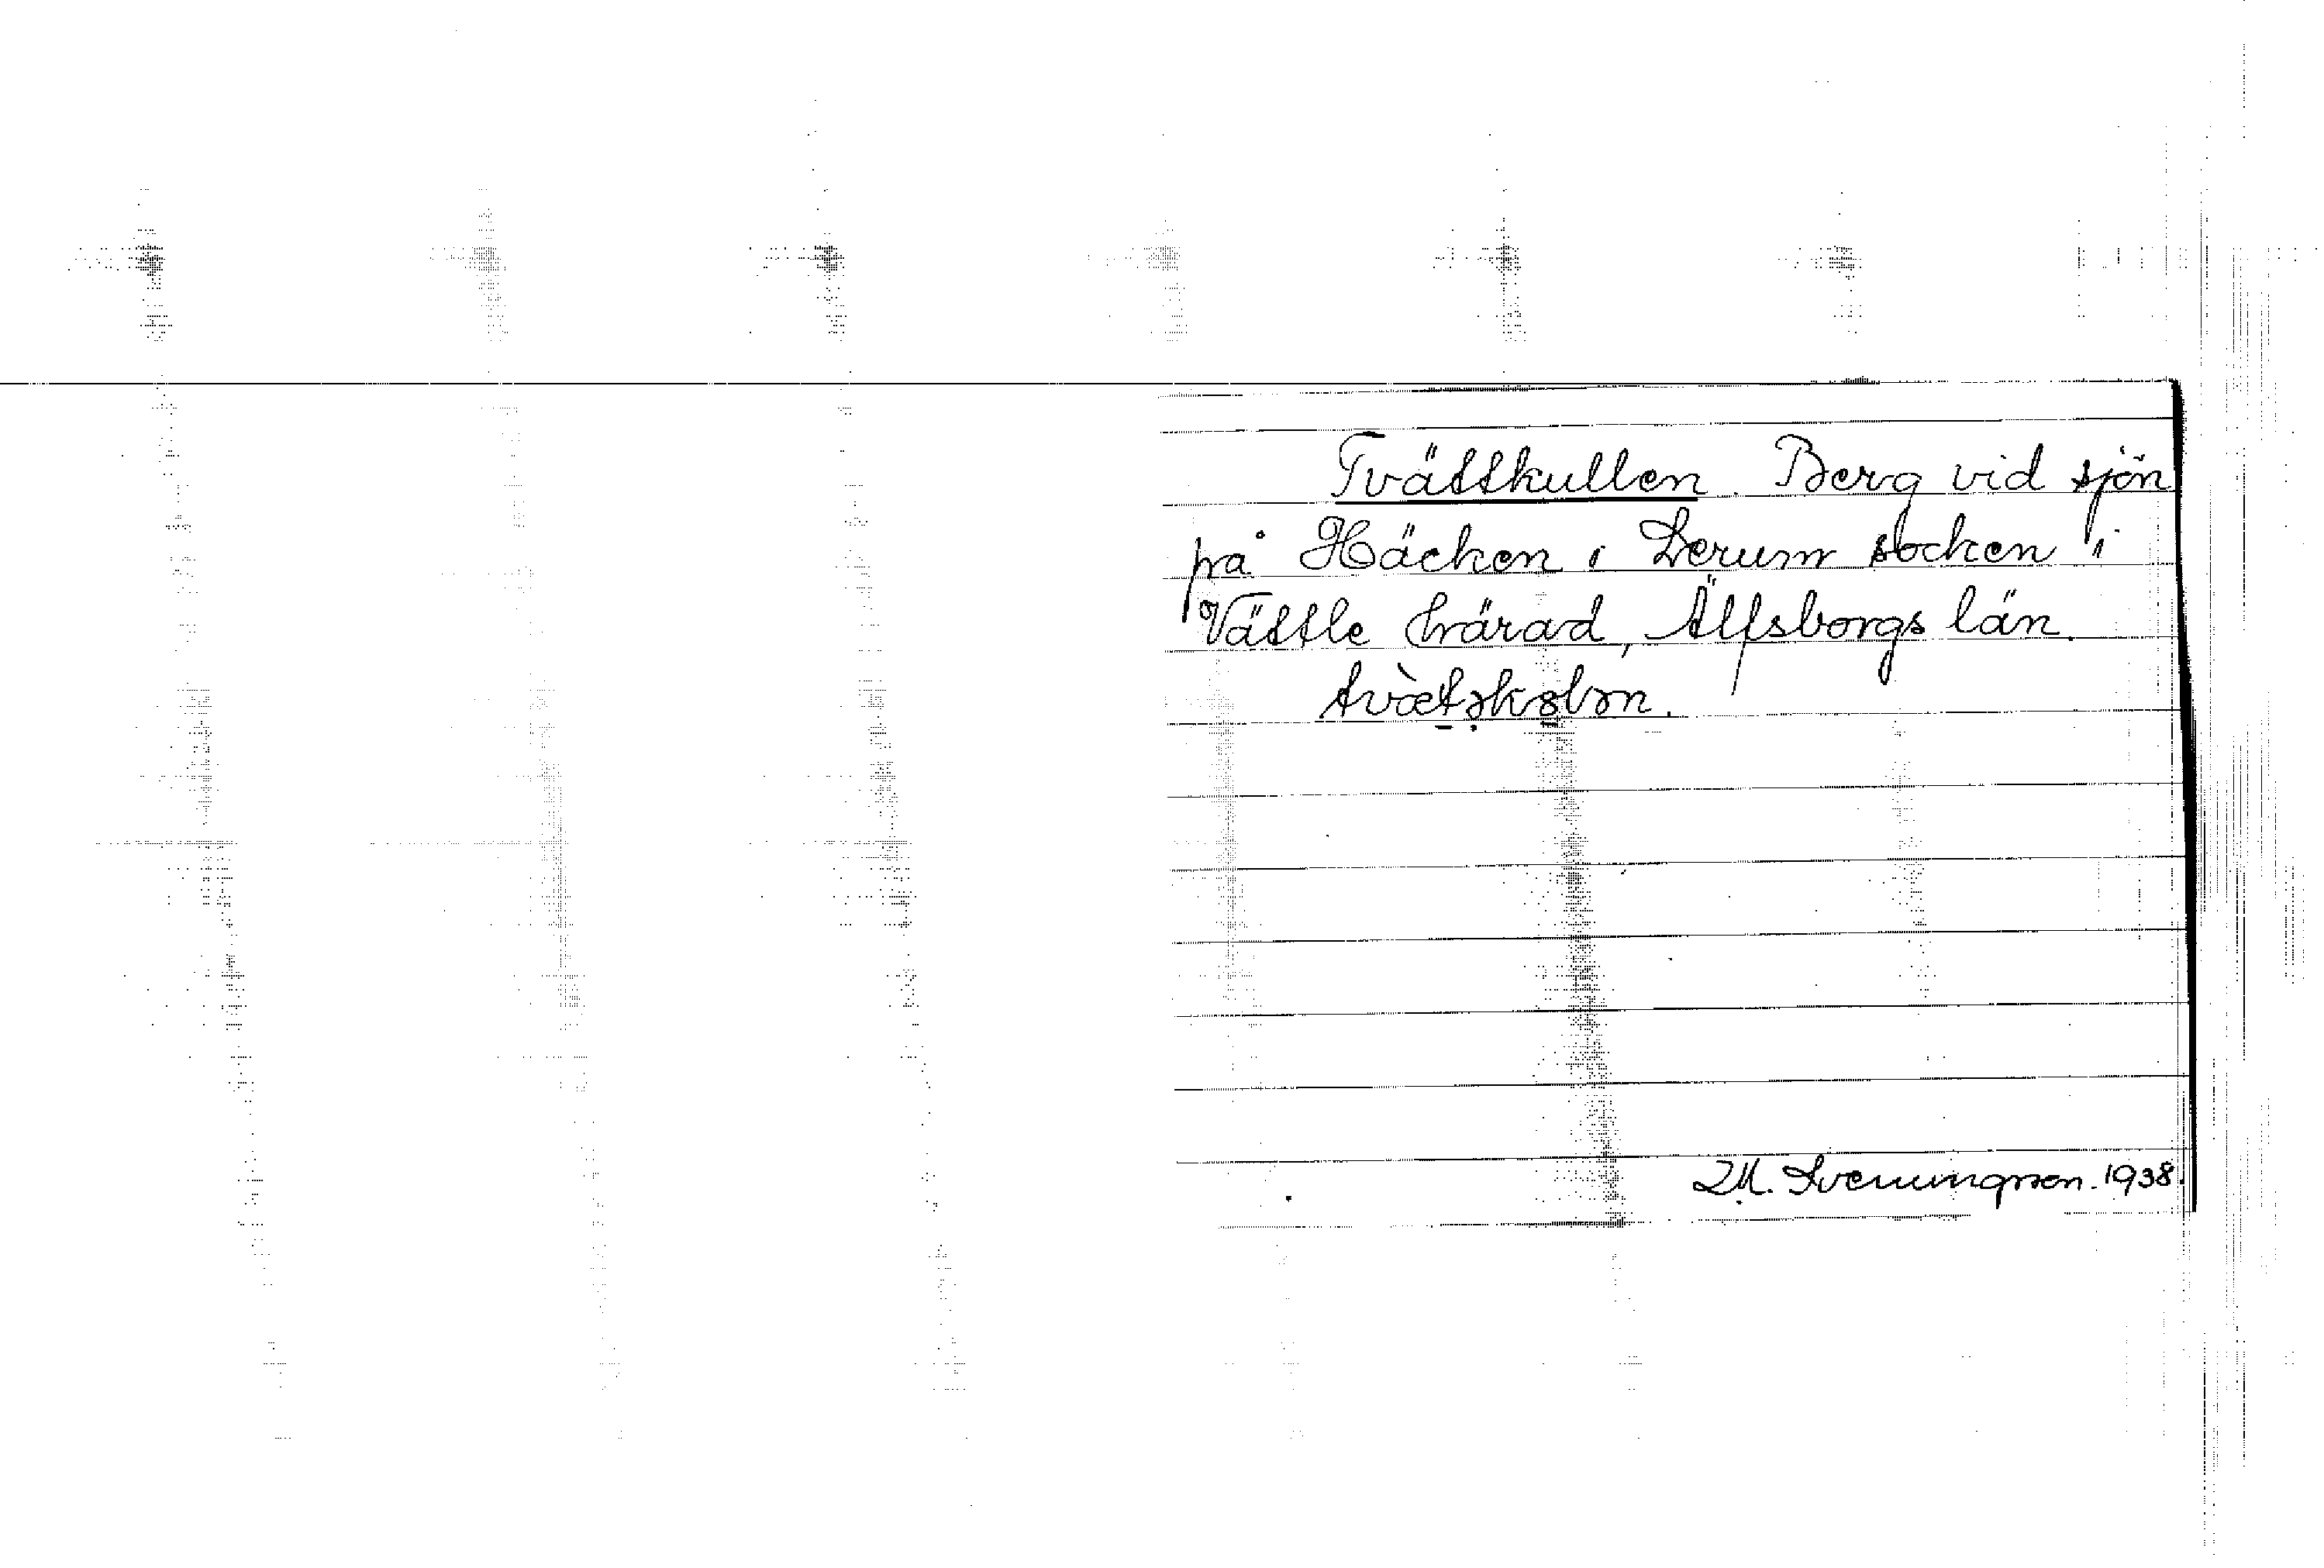 Tvättkullen. Berg vid sjön
på Häcken i Lerum socken i
Vättle härad, Älfsborgs län.
tvæ̀tskɵlən.
M. Svenungsson. 1938.